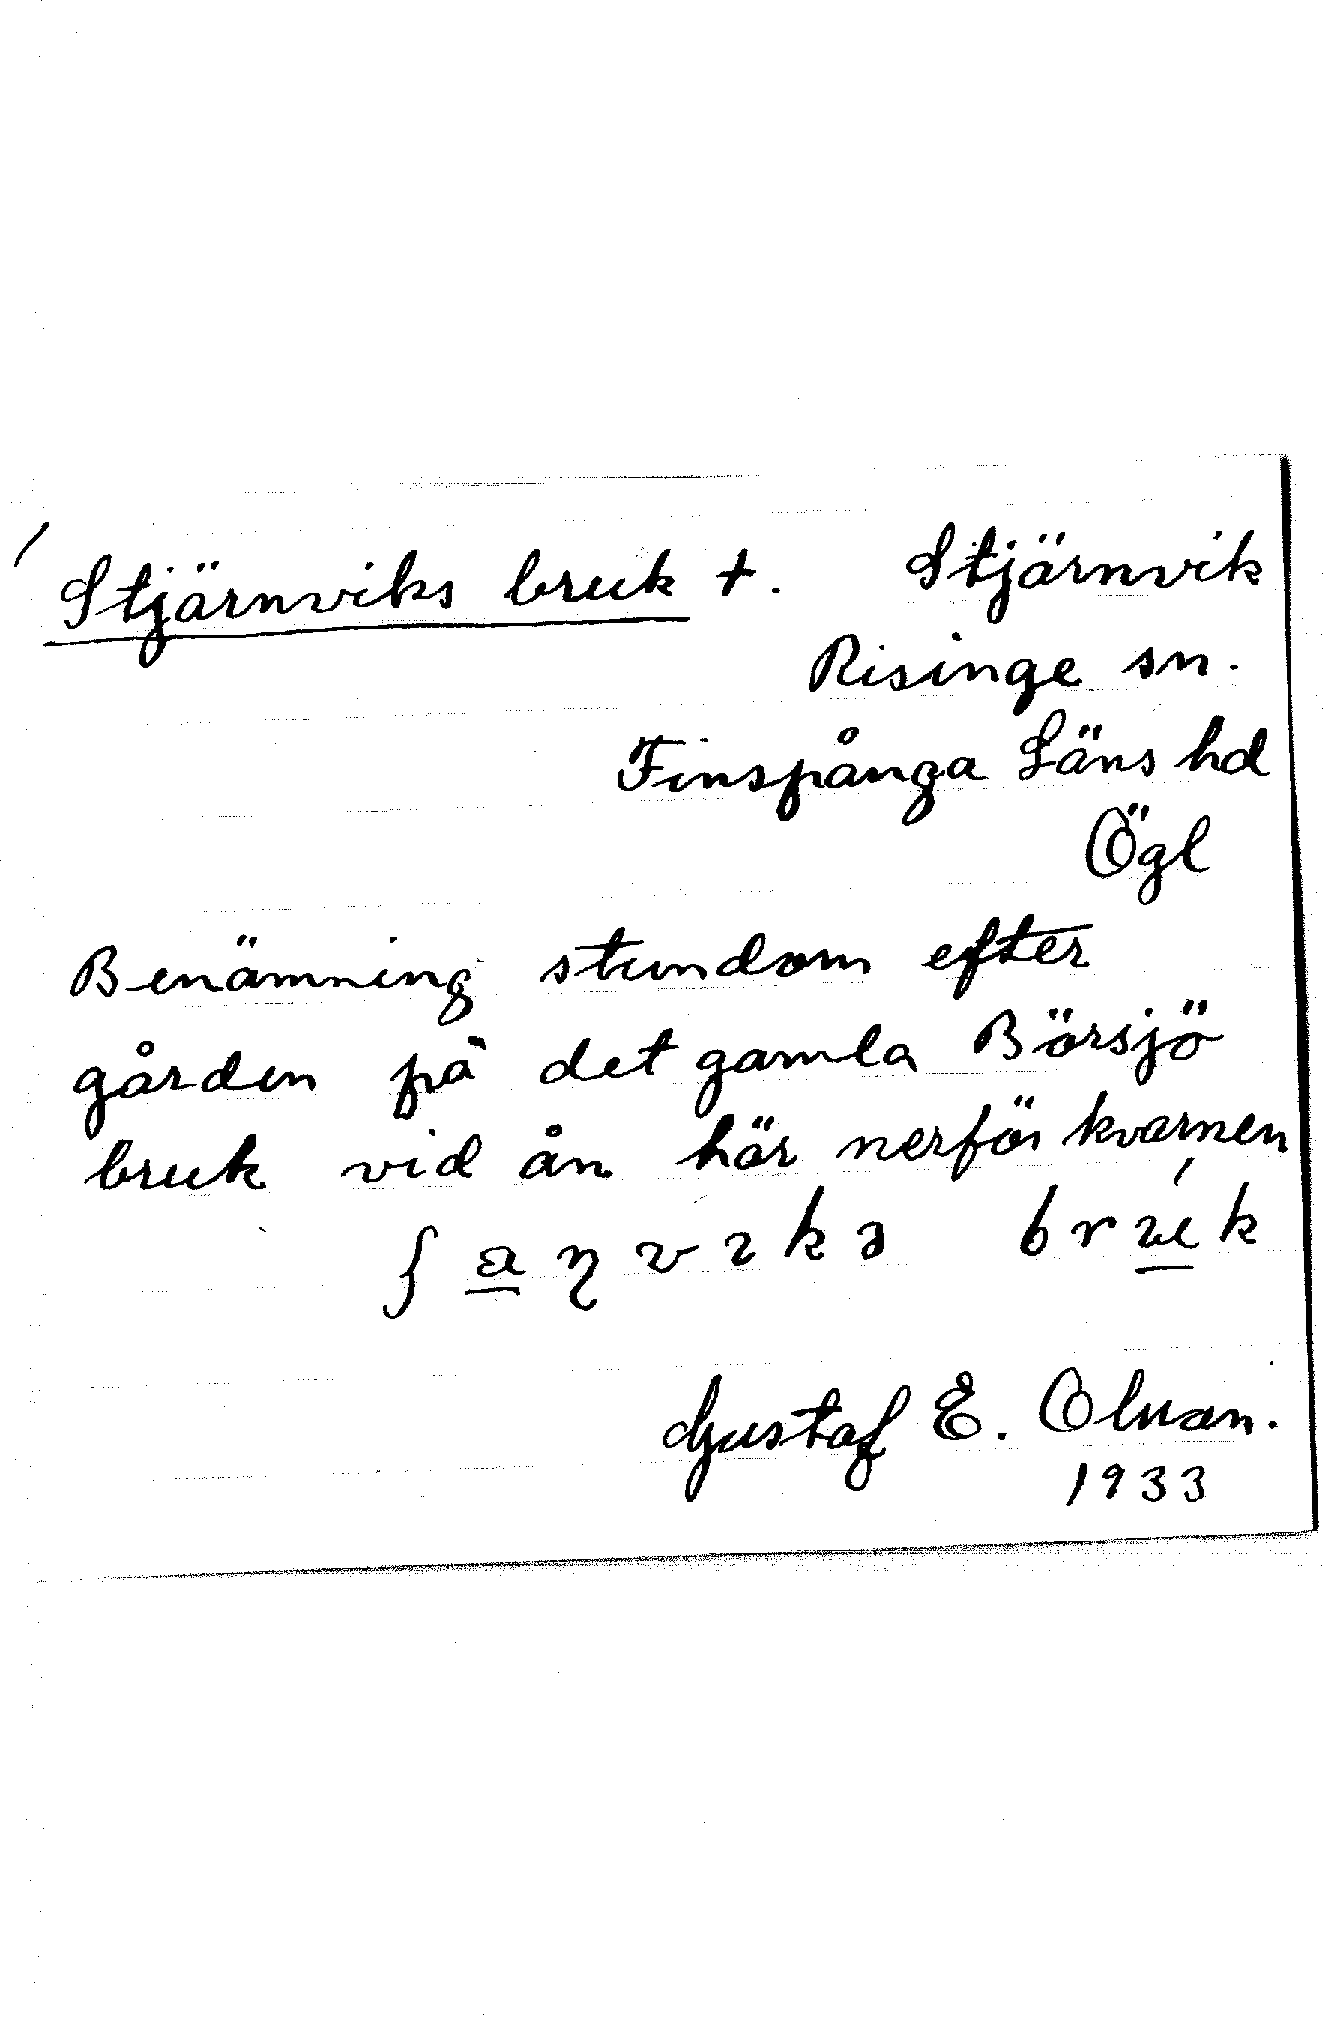 Stjärnviks bruk +. Stjärnvik
Risinge sn.
Finspånga Läns hd
Ögl
Benämning stundom efter
gården på det gamla Börsjö
bruk vid ån här nerför kvarnen
bruk
Gustaf E.
1933